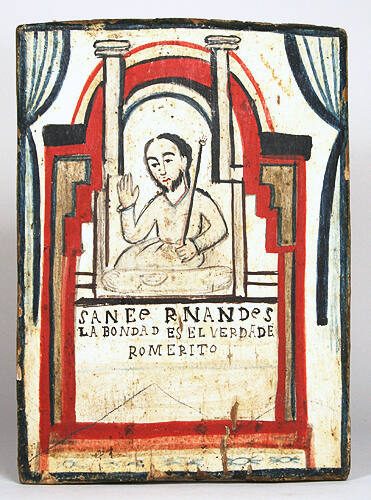 SANFE RNANDES
LA BONDAD ES EL VERDADE
ROMERITO